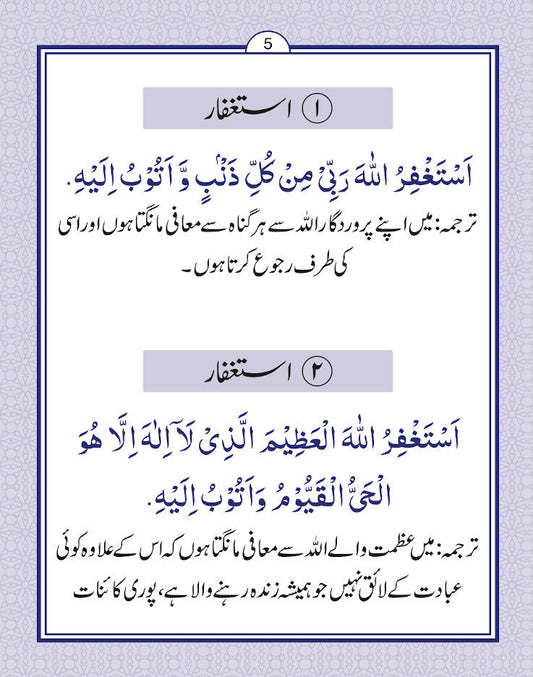 5
① استغفار
اَسْتَغْفِرُ اللهَ رَبِّىْ مِنْ كُلِّ ذَنْبٍ وَّ اَتُوْبُ اِلَيْهِ.
ترجمہ: میں اپنے پروردگار اللہ سے ہر گناہ سے معافی مانگتا ہوں اور اسی
کی طرف رجوع کرتا ہوں ۔
② استغفار
اَسْتَغْفِرُ اللهَ الْعَظِيْمَ الَّذِىْ لَآ اِلٰهَ اِلَّا هُوَ
الْحَىُّ الْقَيُّوْمُ وَاَتُوْبُ اِلَيْهِ.
ترجمہ: میں عظمت والے اللہ سے معافی مانگتا ہوں کہ اس کے علاوہ کوئی
عبادت کے لائق نہیں جو ہمیشہ زندہ رہنے والا ہے، پوری کائنات